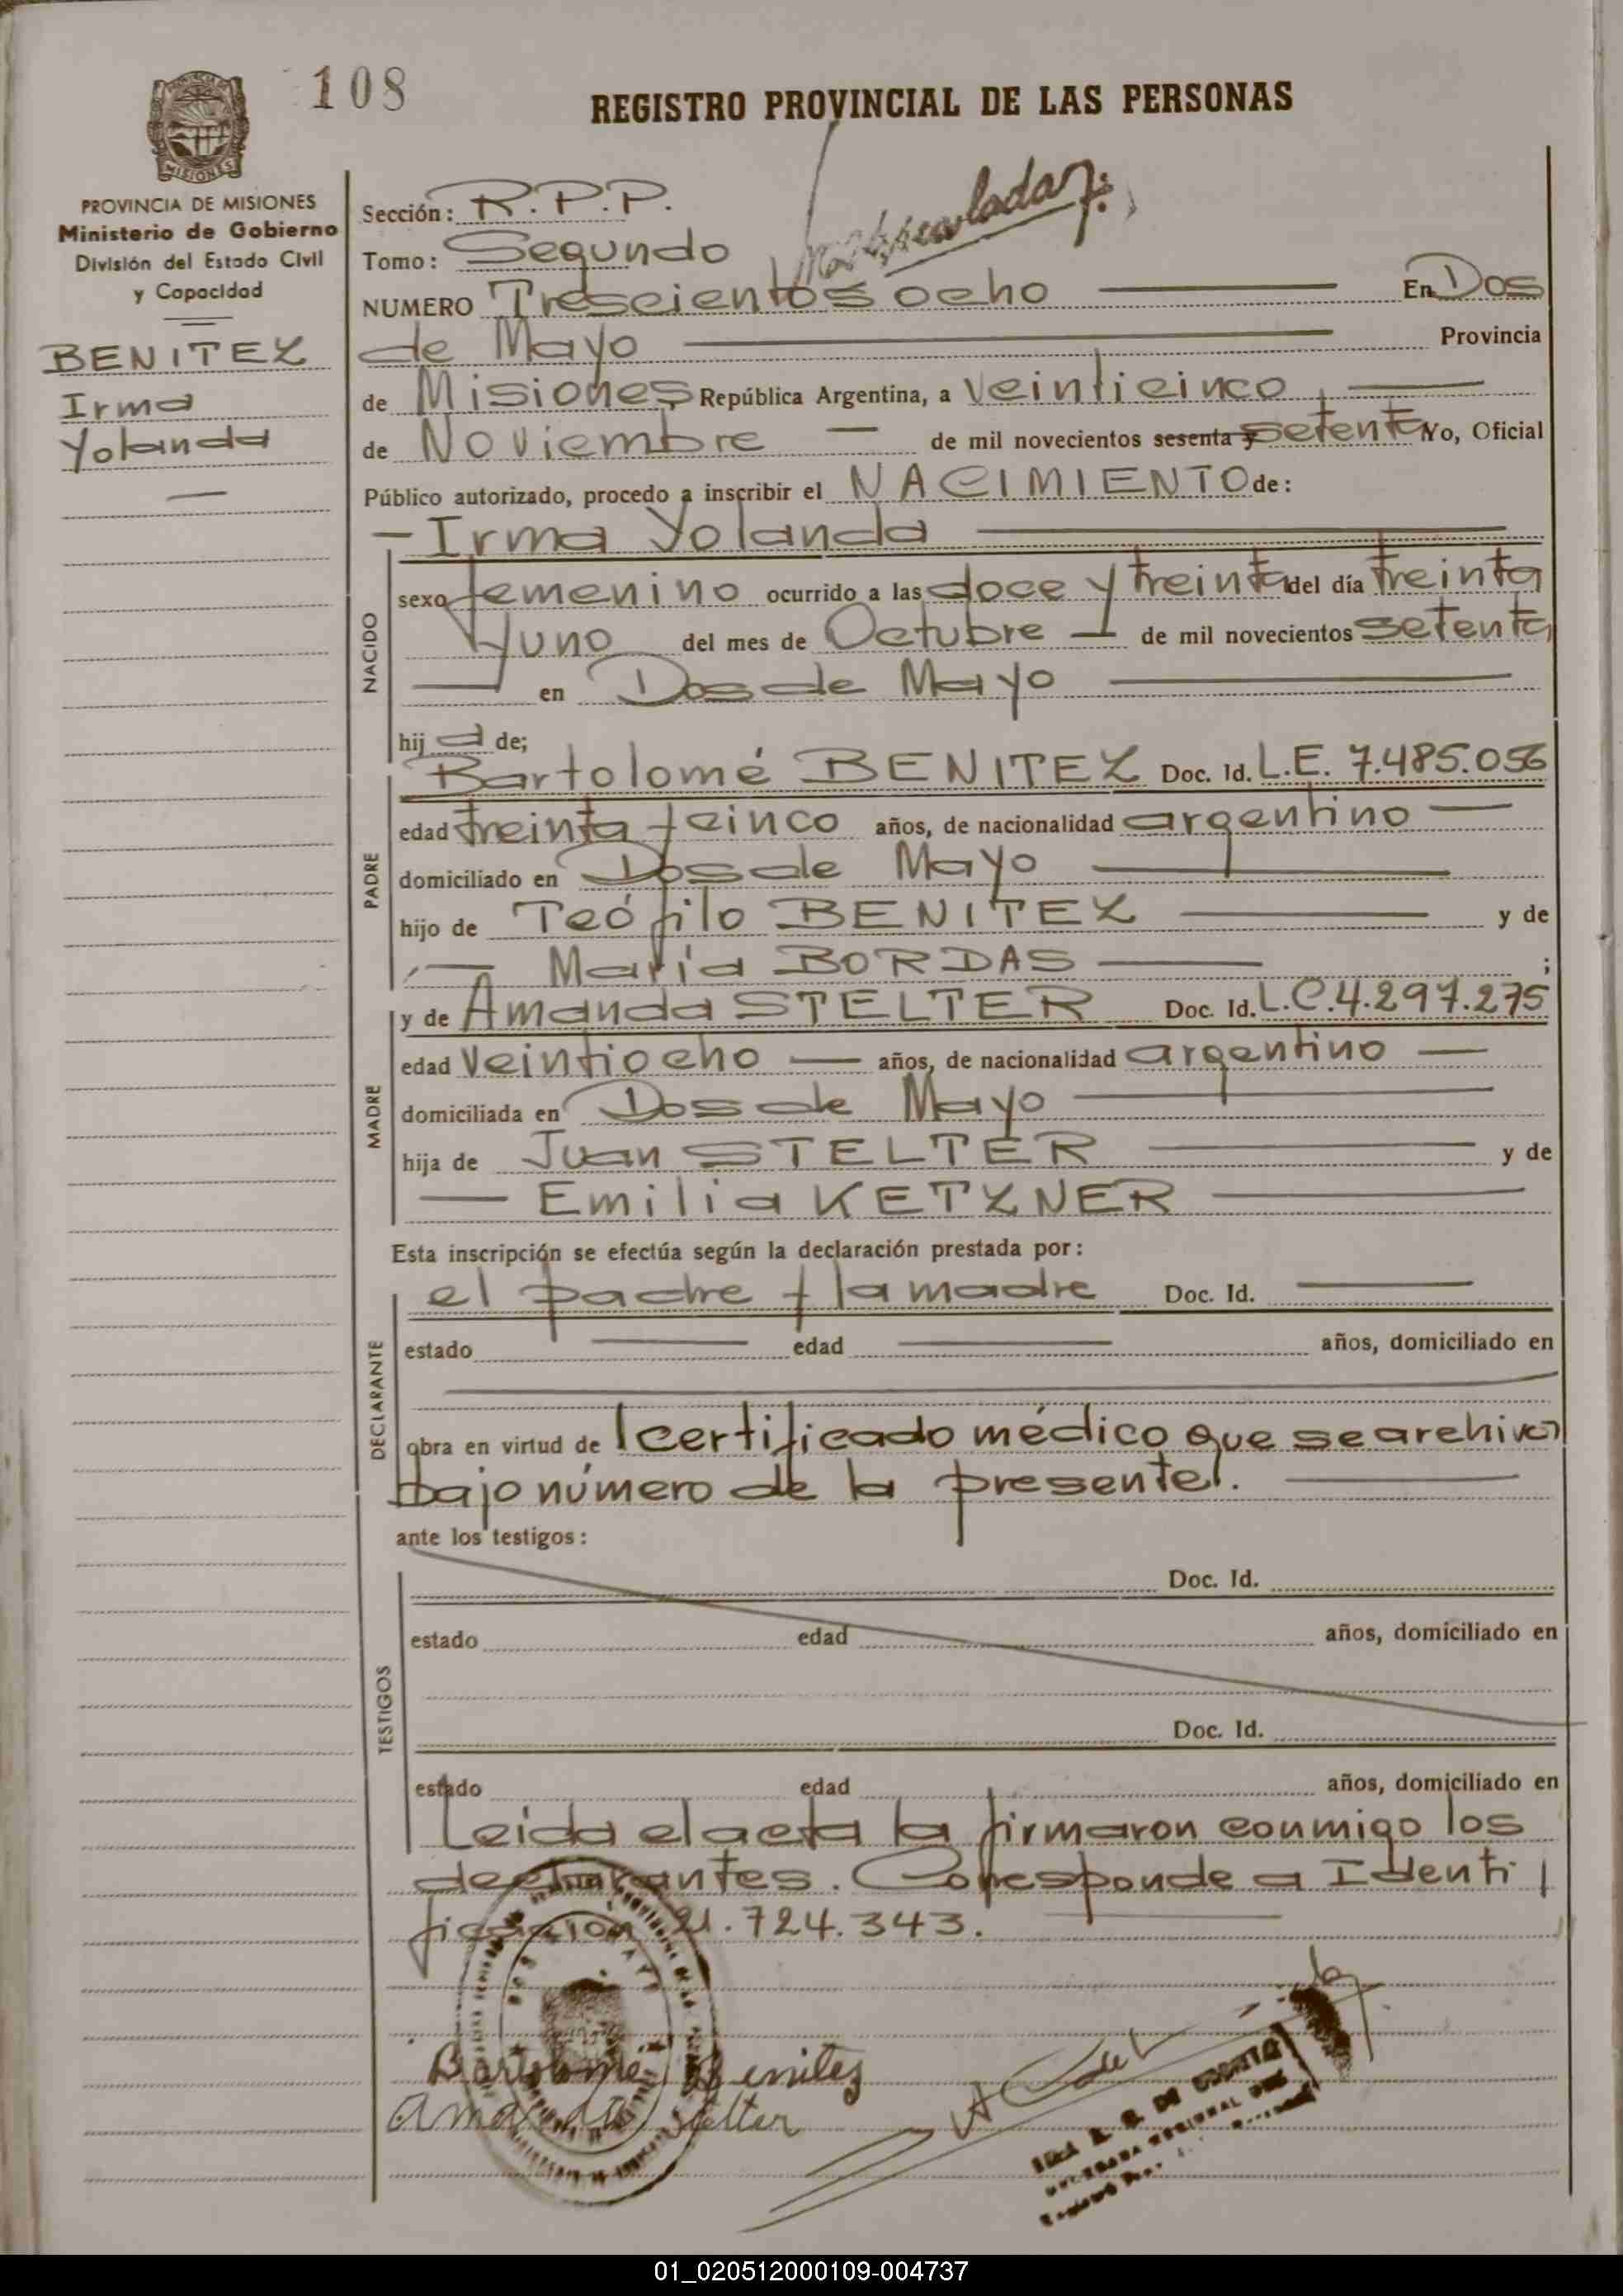 108
REGISTRO PROVINCIAL DE LAS PERSONAS
MISIONES
PROVINCIA DE MISIONES
Ministerio de Gobierno
División del Estado Civil
y Capacidad
BENITEZ
Irma
Yolanda
Sección: R.P.P.
Matriculada
Tomo: Segundo
NUMERO Trescientos ocho En Dos
de Mayo Provincia
de Misiones República Argentina, a veinticinco
de Noviembre de mil novecientos sesenta y setenta Yo, Oficial
Público autorizado, procedo a inscribir el NACIMIENTO de:
Irma Yolanda
NACIDO
sexo femenino ocurrido a las doce y treinta del día treinta
y uno del mes de Octubre de mil novecientos setenta
en Dos de Mayo
hij a de;
PADRE
Bartolomé BENITEZ Doc. Id. L.E. 7.485.056
edad treinta y cinco años, de nacionalidad argentino
domiciliado en Dos de Mayo
hijo de Teófilo BENITEZ y de
María BORDAS ;
MADRE
y de Amanda STELTER Doc. Id. L.C. 4.297.275
edad veintiocho años, de nacionalidad argentino
domiciliada en Dos de Mayo
hija de Juan STELTER y de
Emilia KETZNER
Esta inscripción se efectúa según la declaración prestada por:
DECLARANTE
el padre y la madre Doc. Id.
estado edad años, domiciliado en
obra en virtud de certificado médico que se archiva
bajo número de la presente.
ante los testigos:
TESTIGOS
Doc. Id.
estado edad años, domiciliado en
Doc. Id.
estado edad años, domiciliado en
Leida el acta la firmaron conmigo los
declarantes. Corresponde a Identi
ficación 21.724.343.
Bartolomé Benitez
Amanda Stelter
01_020512000109-004737